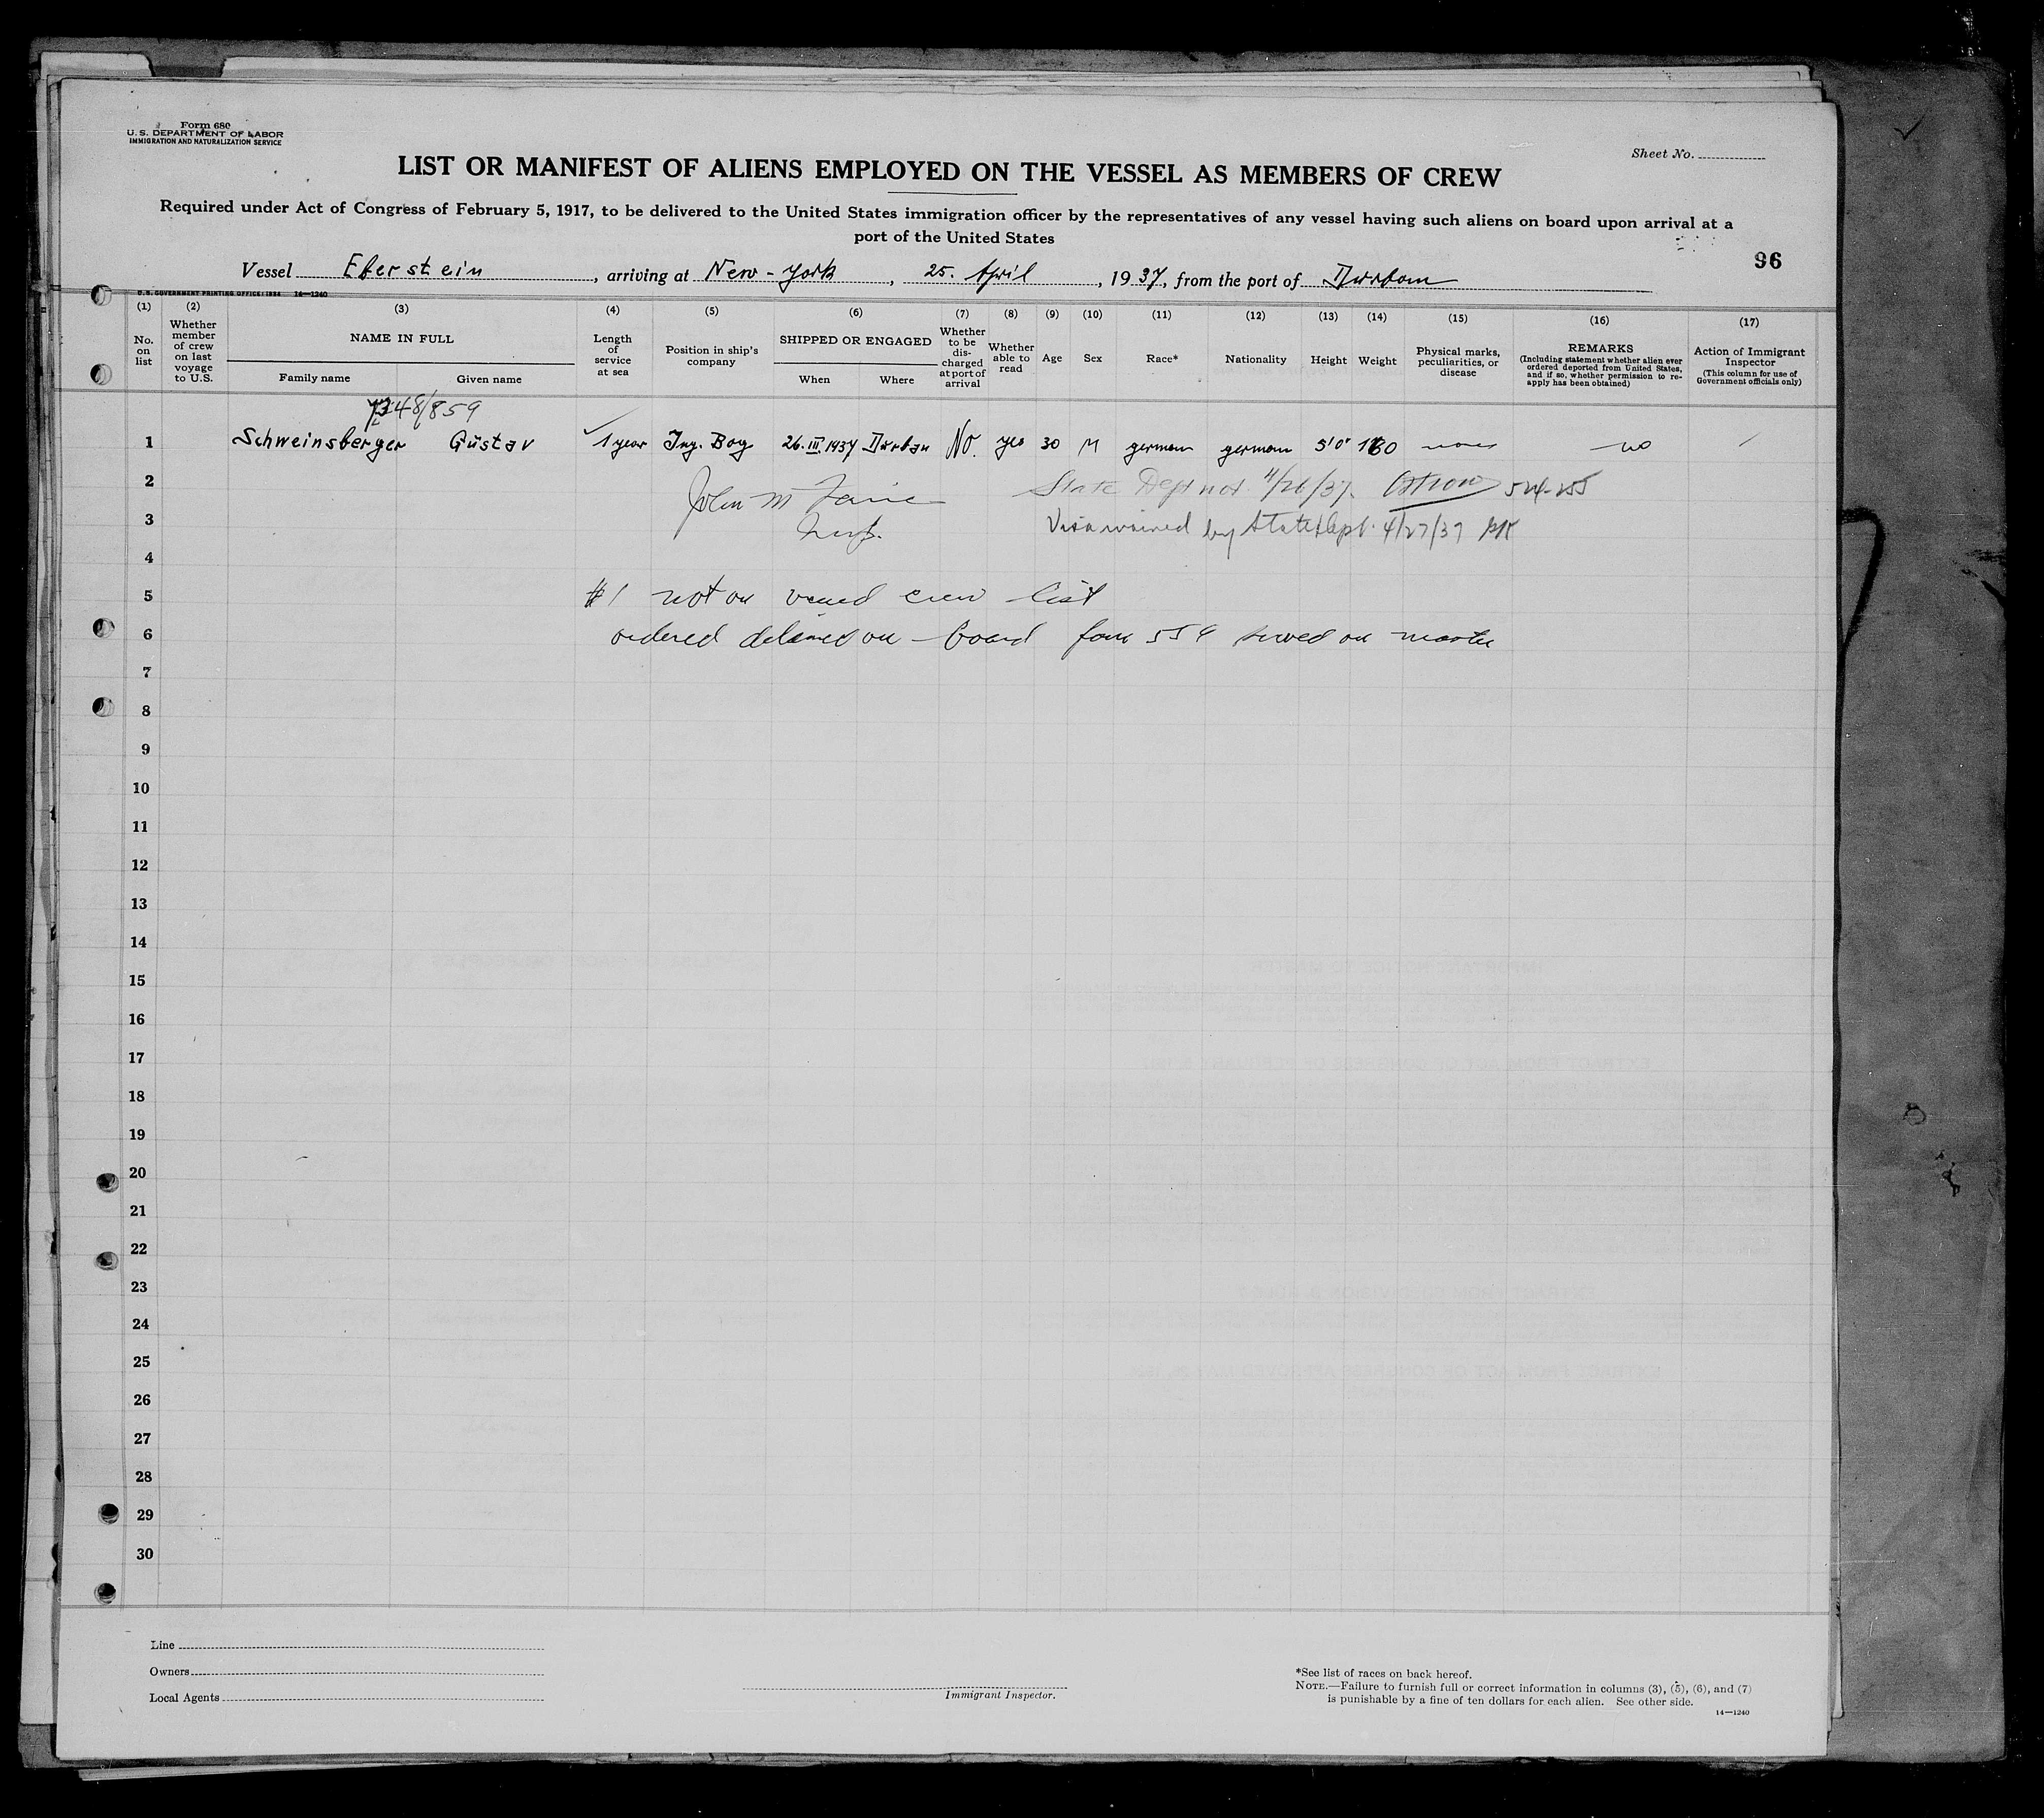 Form 680
U. S. DEPARTMENT OF LABOR
IMMIGRATION AND NATURALIZATION SERVICE
Sheet No.
LIST OR MANIFEST OF ALIENS EMPLOYED ON THE VESSEL AS MEMBERS OF CREW
Required under Act of Congress of February 5, 1917, to be delivered to the United States immigration officer by the representatives of any vessel having such aliens on board upon arrival at a
port of the United States
96
Vessel Eberstein, arriving at New-York, 25. April, 1937, from the port of Durban
U. S. GOVERNMENT PRINTING OFFICE: 1934 14—1240
(1) (2) (3) (4) (5) (6) (7) (8) (9) (10) (11) (12) (13) (14) (15) (16) (17)
No. on list
Whether member of crew on last voyage to U.S.
NAME IN FULL
Family name Given name
Length of service at sea
Position in ship's company
SHIPPED OR ENGAGED
When Where
Whether to be discharged at port of arrival
Whether able to read
Age
Sex
Race*
Nationality
Height
Weight
Physical marks, peculiarities, or disease
REMARKS
(Including statement whether alien ever ordered deported from United States, and if so, whether permission to reapply has been obtained)
Action of Immigrant Inspector
(This column for use of Government officials only)
48/859
1 Schweinsberger Gustav 1 year Ing. Boy 26.III.1937 Durban No. yes 30 M german german 5'0" 160 none no
2 John M State Dept not. 4/26/37 524-255
3 Insp. Visa waived by State Dept. 4/27/37
4
5 #1 not on visaed crew list
6 ordered detained on board form 559 served on master
7
8
9
10
11
12
13
14
15
16
17
18
19
20
21
22
23
24
25
26
27
28
29
30
Line
Owners
Local Agents
Immigrant Inspector.
*See list of races on back hereof.
NOTE.—Failure to furnish full or correct information in columns (3), (5), (6), and (7)
is punishable by a fine of ten dollars for each alien. See other side.
14—1240